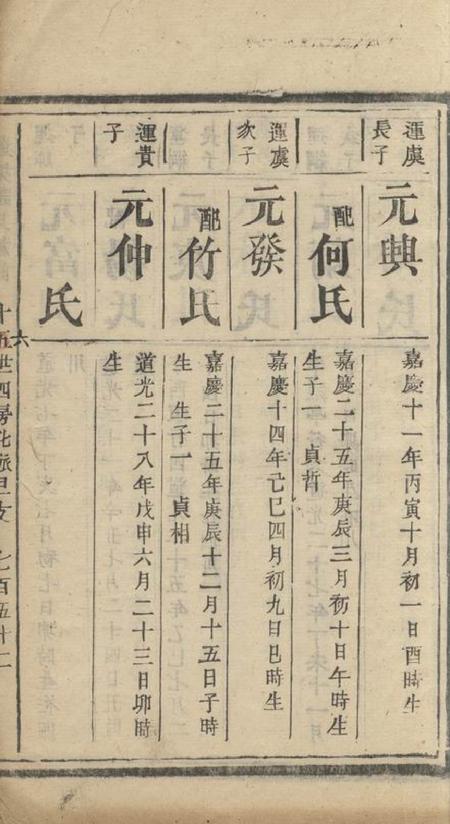 運虞長子
元興
嘉慶十一年丙寅十月初一日酉時生
配何氏
嘉慶二十五年庚辰三月初十日午時生
生子一 貞哲
運虞次子
元發
嘉慶十四年己巳四月初九日巳時生
配竹氏
嘉慶二十五年庚辰十二月十五日子時
生 生子一 貞相
運貴子
元仲
道光二十八年戊申六月二十三日卯時
生
氏
十六世四房
七百五十二